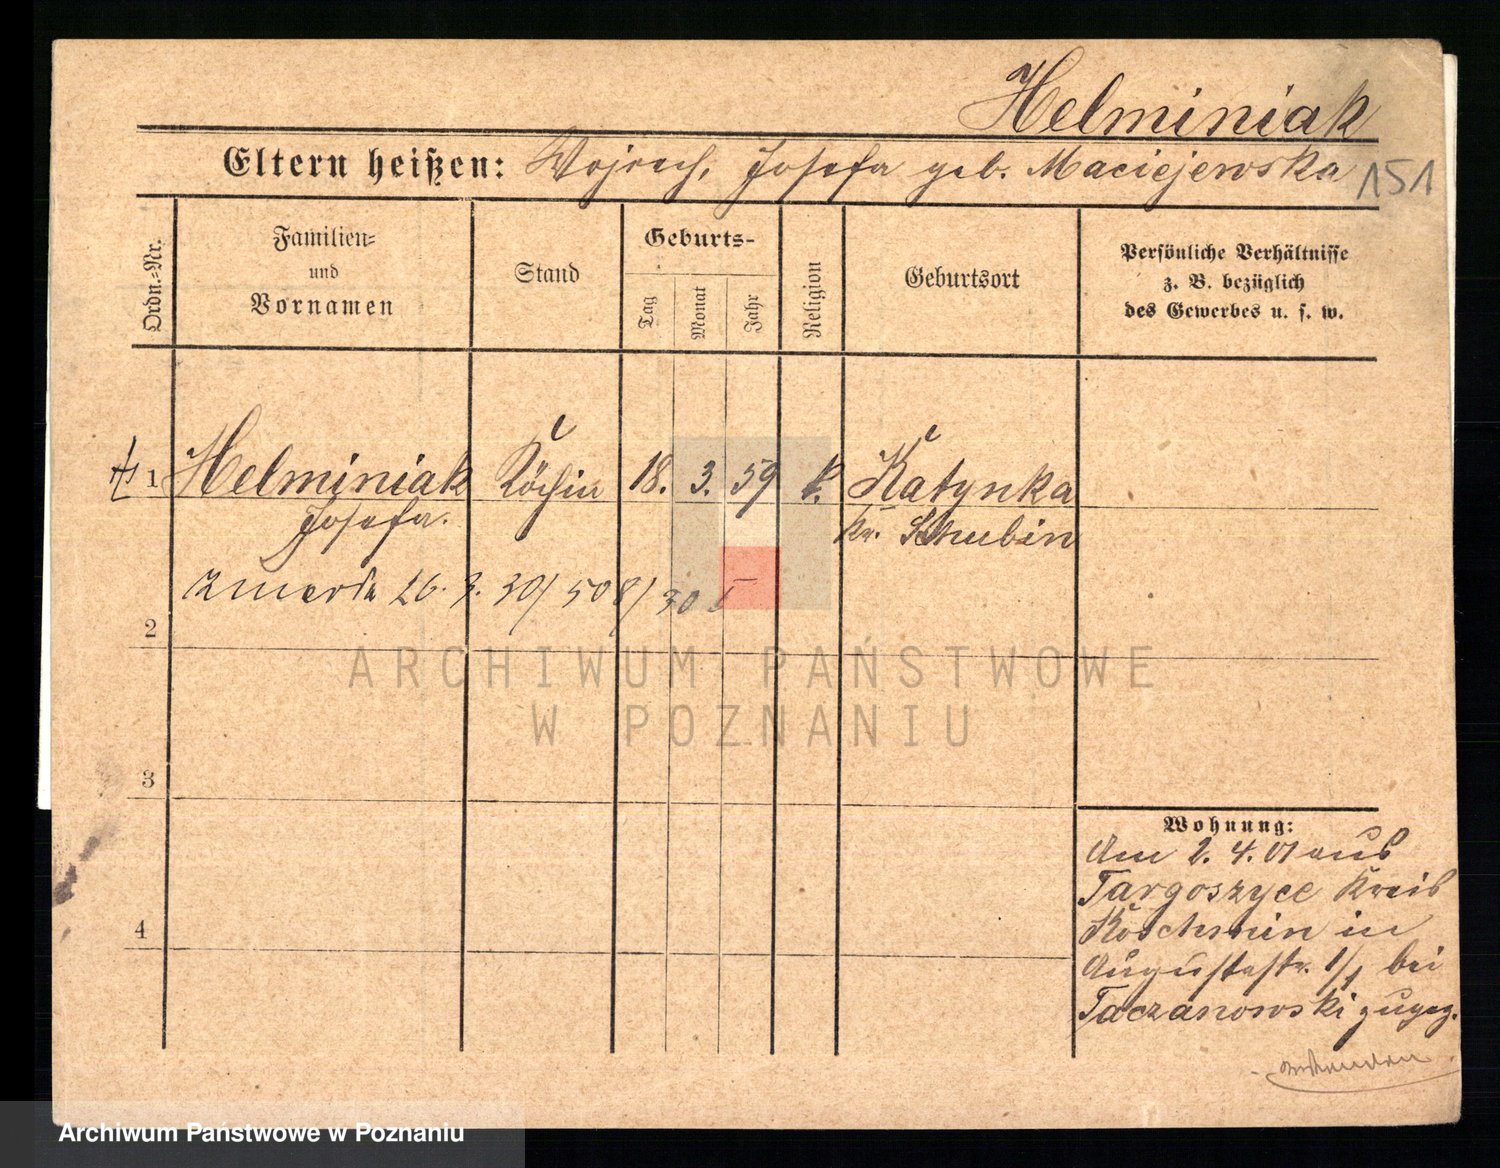 Helminiak
Eltern heißen: Wojcech, Josefa geb. Maciejewska
151
Ordn.-Nr.
Familien-
und
Vornamen
Stand
Geburts-
Tag
Monat
Jahr
Religion
Geburtsort
Persönliche Verhältnisse
z. B. bezüglich
des Gewerbes u. s. w.
1 Helminiak Köchin 18. 3. 59 k. Katynka
Josefa. Kr. Schubin
zmarła 26. 3. 30/508/30 I
2
ARCHIWUM PAŃSTWOWE
W POZNANIU
3
Wohnung:
Am 2. 4. 01 aus
Targoszyce Kreis
Koschmin in
Augustastr. 1/1 bei
4
Taczanowski zugez.
Archiwum Państwowe w Poznaniu